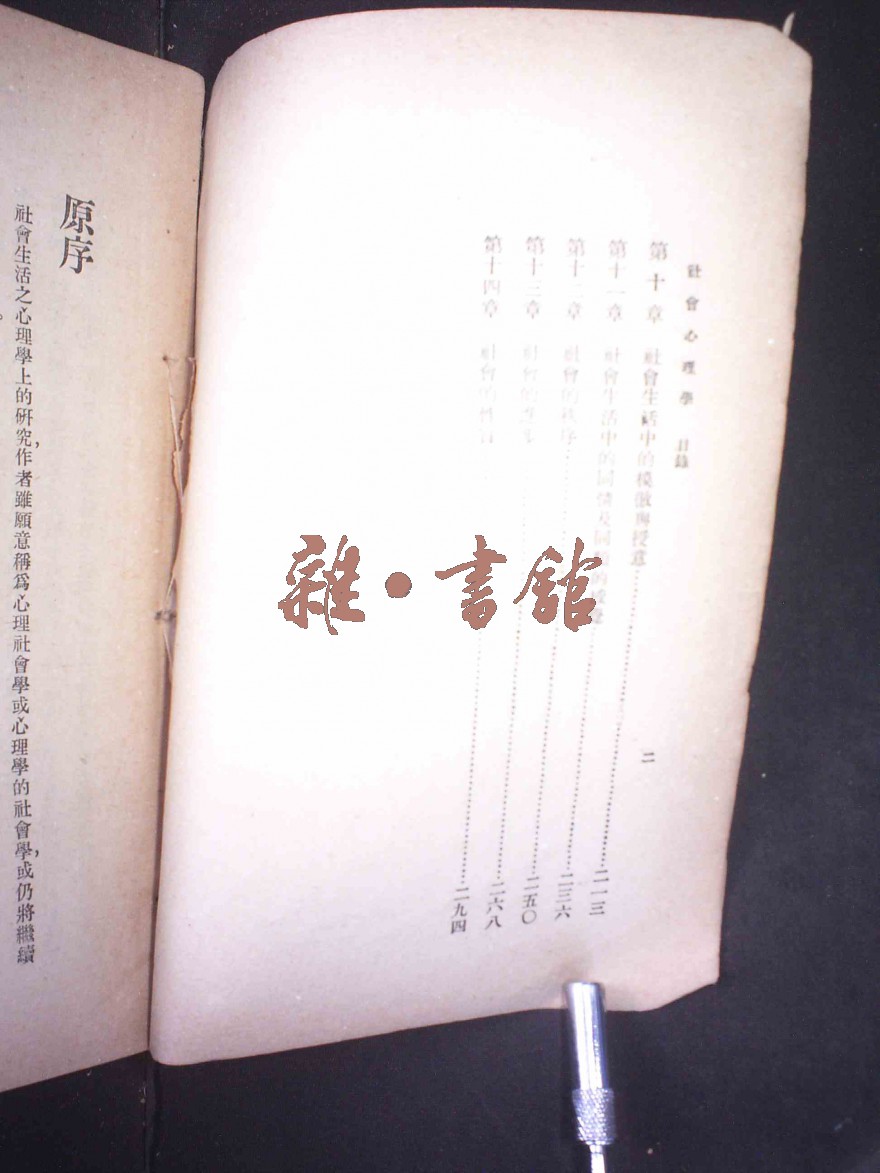 社會心理學 目錄
二
第十章 社會生活中的模倣與授意……二一三
第十一章 社會生活中的同情及同類的……二三六
第十二章 社會的秩序……二五〇
第十三章 社會的進步……二六八
第十四章 社會的性質……二九四
原序
社會生活之心理學上的研究，作者雖願意稱爲心理社會學或心理學的社會學，或仍將繼續
雜•書館